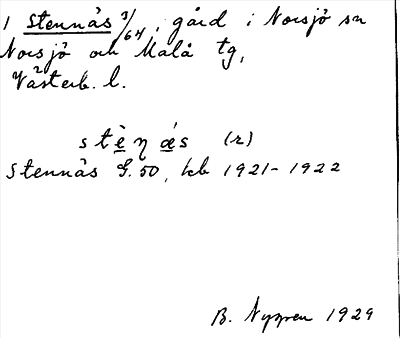 1 Stennäs 3/64, gård i Norsjö sn
Norsjö och Malå tg,
Västerb. l.
stèn æ´s (r)
Stennäs G. 50, kb 1921-1922
B. Nygren 1929